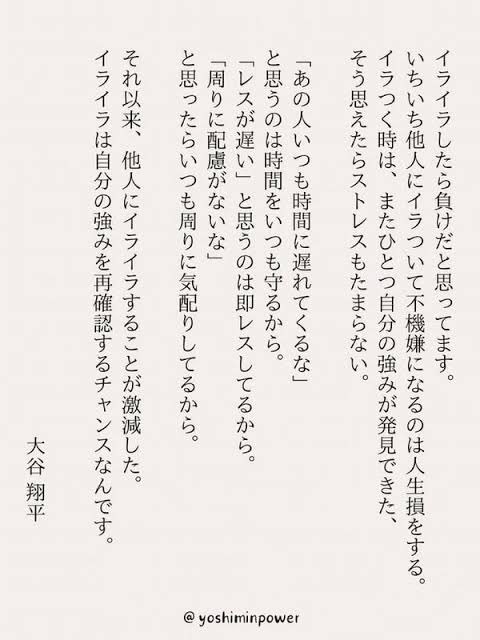 イライラしたら負けだと思ってます。
いちいち他人にイラついて不機嫌になるのは人生損をする。
イラつく時は、またひとつ自分の強みが発見できた、
そう思えたらストレスもたまらない。
「あの人いつも時間に遅れてくるな」
と思うのは時間をいつも守るから。
「レスが遅い」と思うのは即レスしてるから。
「周りに配慮がないな」
と思ったらいつも周りに気配りしてるから。
それ以来、他人にイライラすることが激減した。
イライラは自分の強みを再確認するチャンスなんです。
大谷 翔平
@yoshiminpower